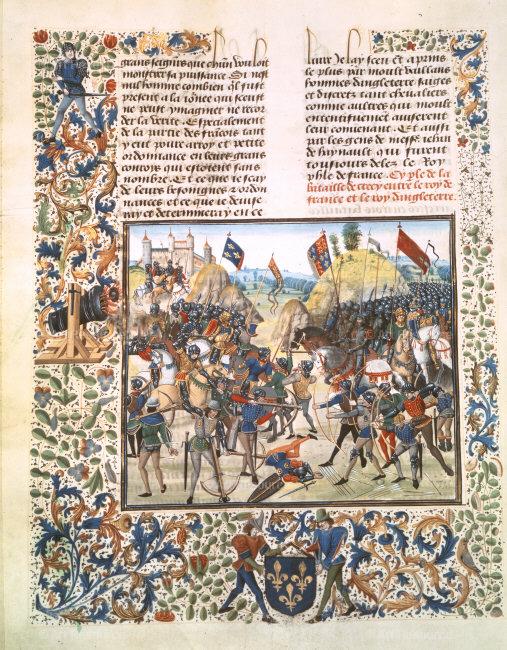 grans seigneurs que chun vouloit
monstrer sa puissance Si nest
nul homme combien qil fust
present a la iournee qui sceust
ne peust ymaginer ne recor
der la verite Especialement
de la partie des francois tant
y eut poure arroy et petite
ordonnance en leurs grans
conrois qui estoient sans
nombre Et ce que ie scay
de leurs besongnes
et ce que ie deuise
ray et determineray en ce
liure Ie lay sceu et aprins
le plus par moult vaillans
hommes dangleterre saiges
et discretz sans cheualiers
comme aultres qui moult
ententifuement auiserent
leur conuenant Et aussi
par les gens de messe Iehan
de haynault qui furent
tousiours delez le Roy
phle de france Cy ple de la
bataille de crecy entre le roy de
france et le roy dangleterre